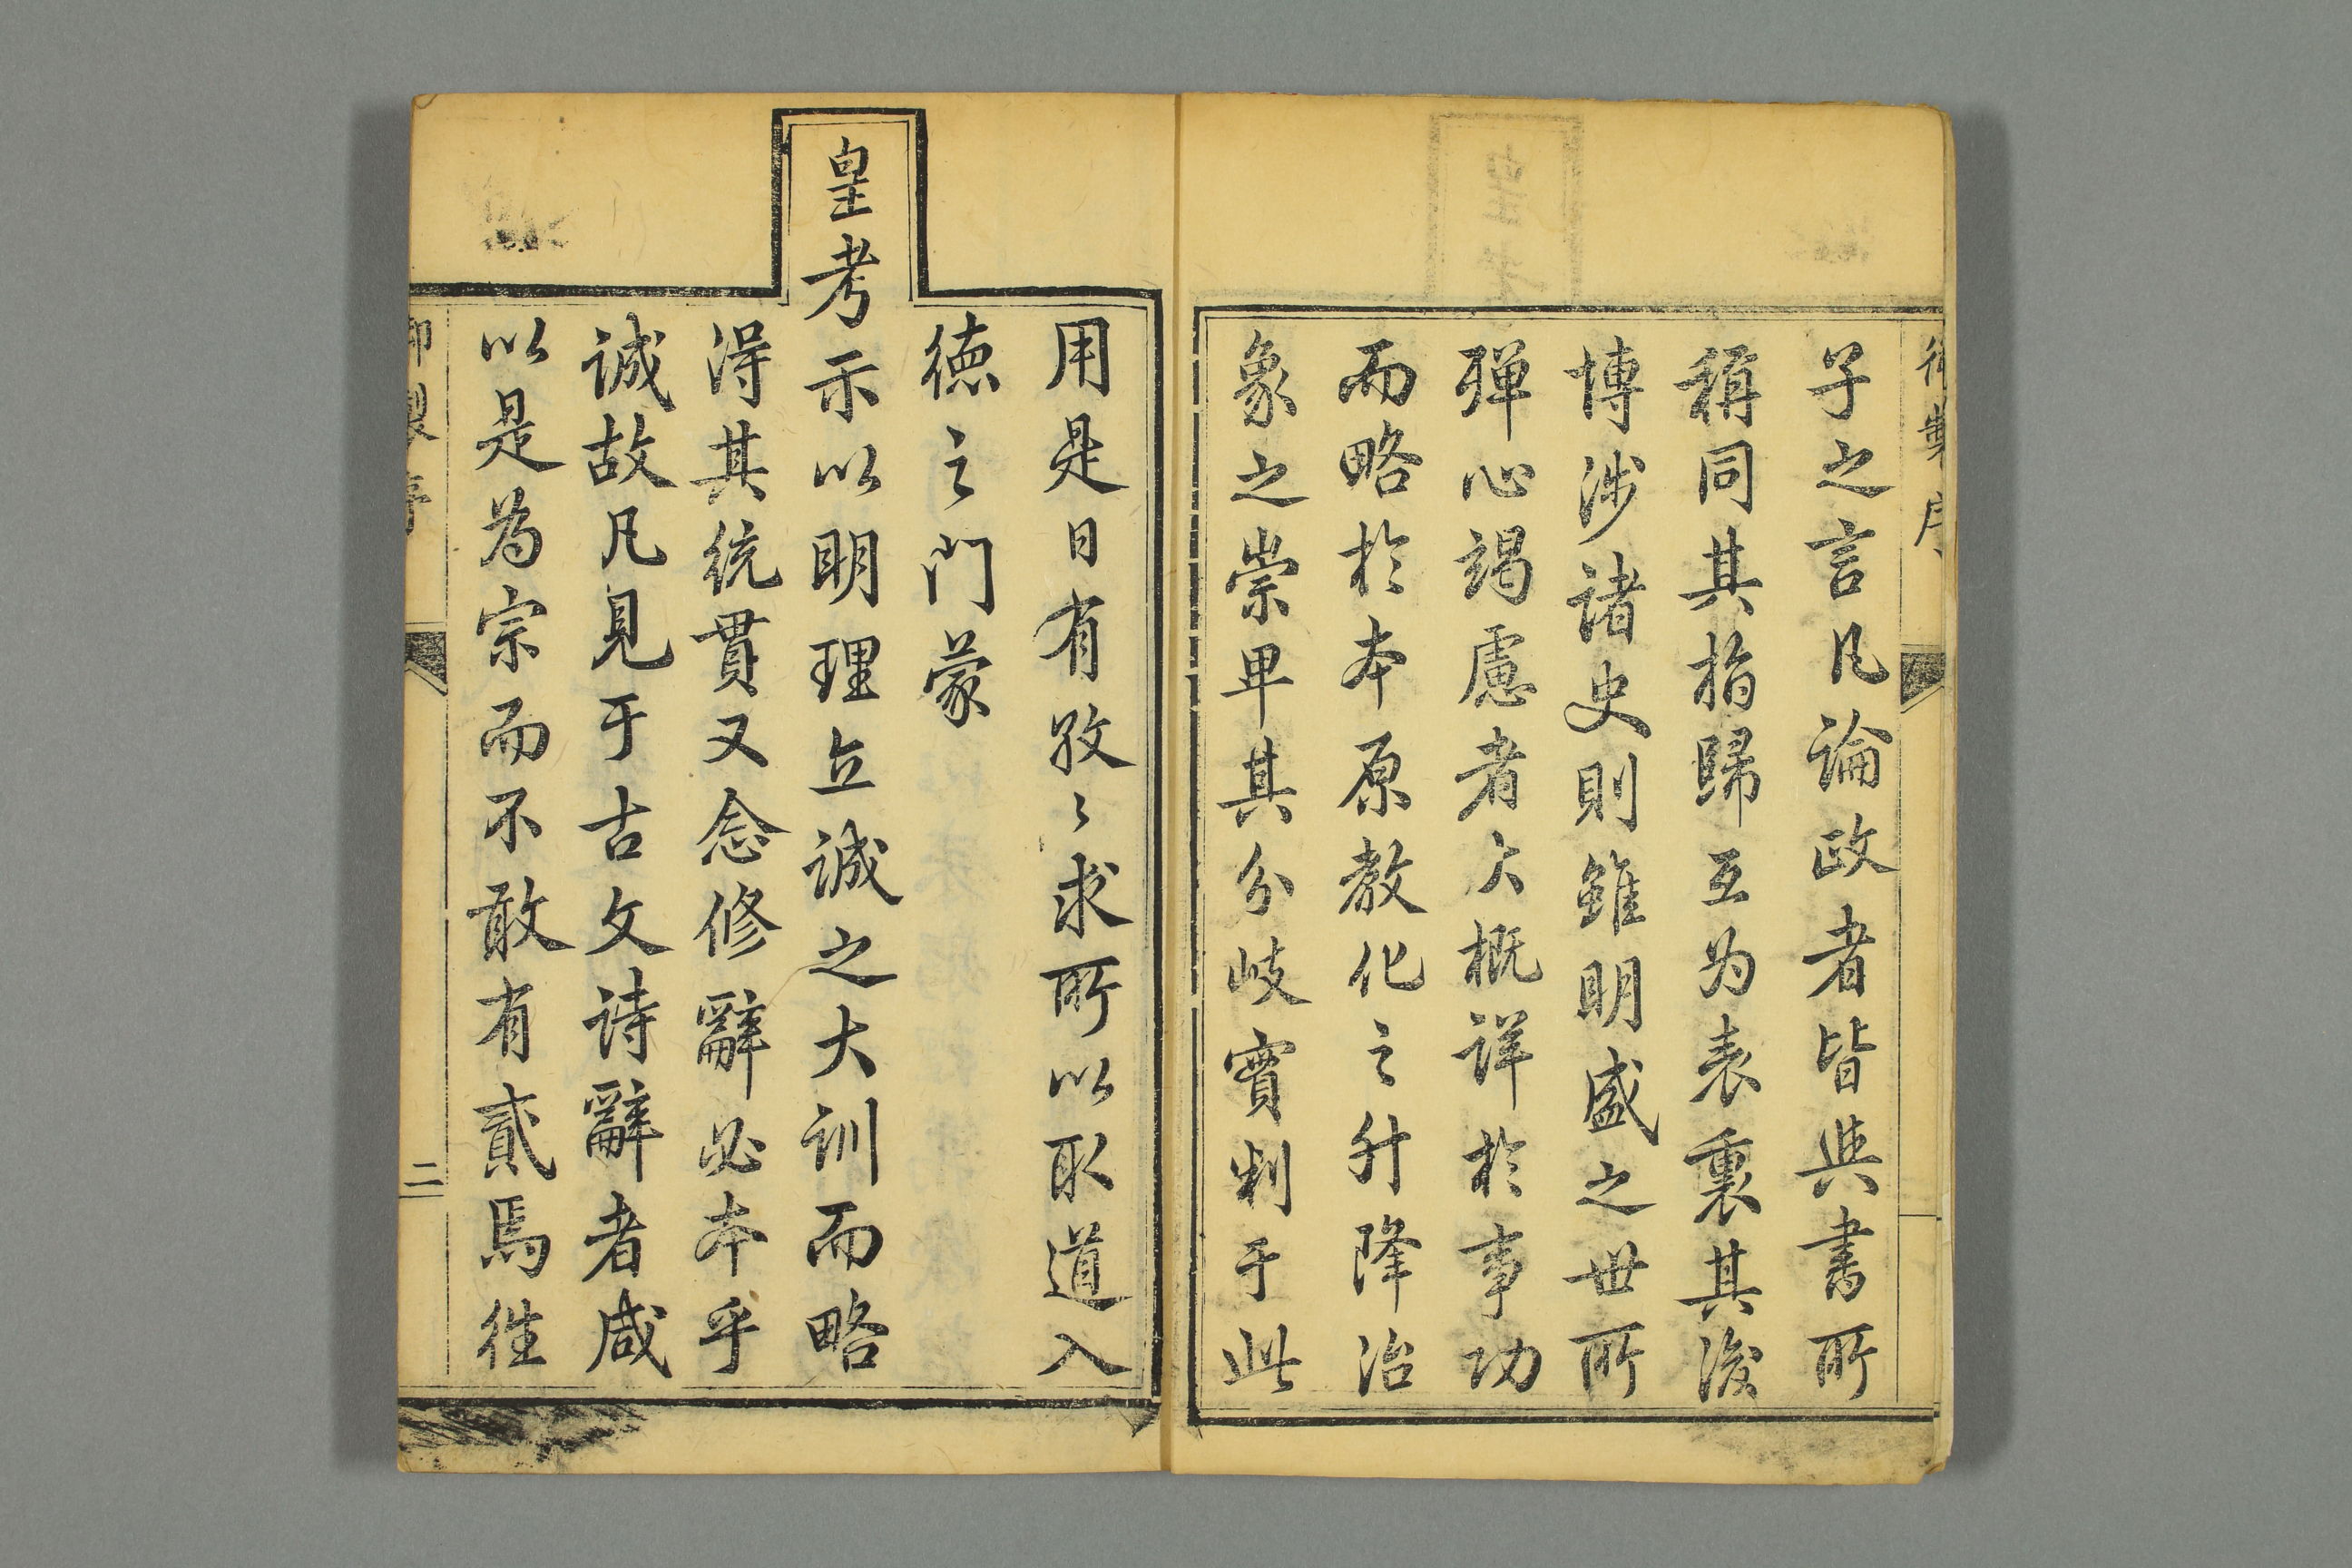 御製序
子之言凡論政者皆與書所
稱同其指歸互为表裏其後
博涉諸史則雖明盛之世所
殫心竭慮者大概详於事功
而略於本原教化之升降治
象之崇卑其分歧實判于此
用是日有孜〻求所以取道入
徳之门蒙
皇考示以明理立誠之大训而略
得其统貫又念修辭必本乎
誠故凡見于古文诗辭者咸
以是为宗而不敢有貳焉徃
御製序
二